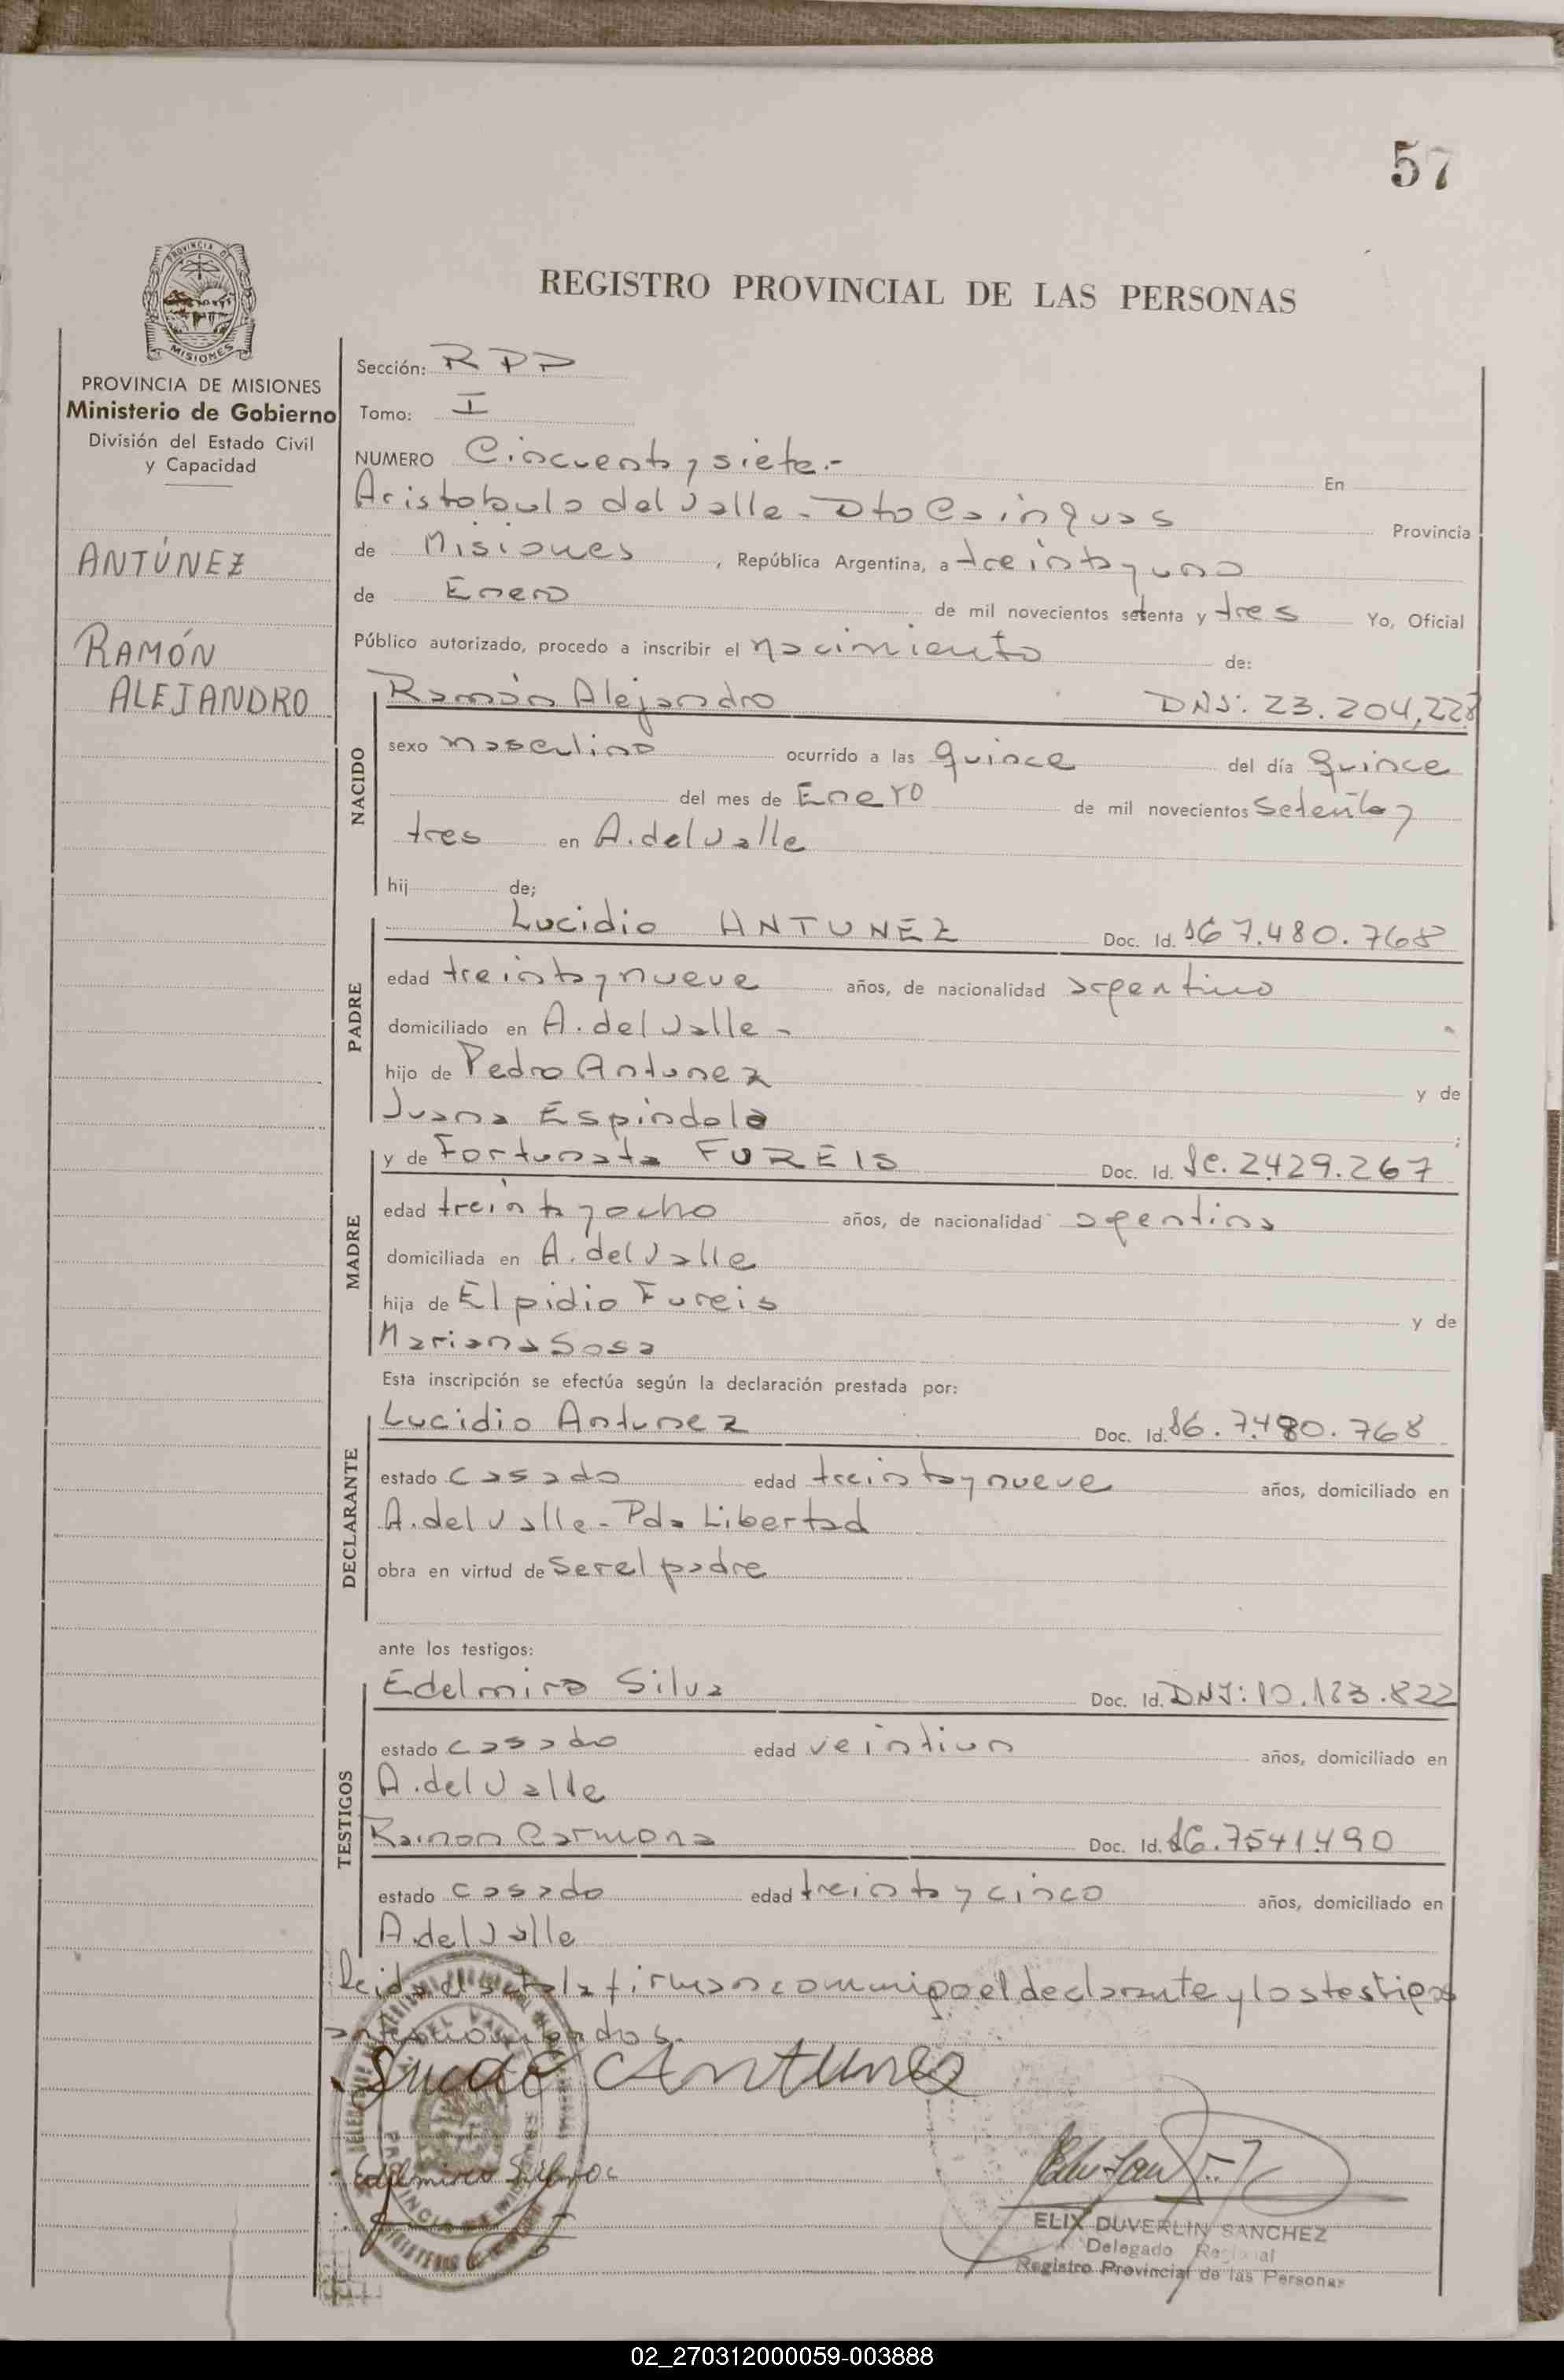 57
PROVINCIA DE
MISIONES
REGISTRO PROVINCIAL DE LAS PERSONAS
PROVINCIA DE MISIONES
Ministerio de Gobierno
División del Estado Civil
y Capacidad
ANTÚNEZ
RAMÓN
ALEJANDRO
Sección: RPP
Tomo: I
NUMERO Cincuenta y siete.- En
Aristobulo del Valle - Dto Cainguas Provincia
de Misiones, República Argentina, a treinta y uno
de Enero de mil novecientos setenta y tres Yo, Oficial
Público autorizado, procedo a inscribir el nacimiento de:
NACIDO
Ramón Alejandro DNI: 23.204.228
sexo masculino ocurrido a las quince del día quince
del mes de Enero de mil novecientos setenta y
tres en A. del Valle
hij de;
PADRE
Lucidio ANTUNEZ Doc. Id. 7.480.768
edad treinta y nueve años, de nacionalidad argentino
domiciliado en A. del Valle -
hijo de Pedro Antunez y de
Juana Espindola ;
MADRE
y de Fortunata FUREIS Doc. Id. Lc. 2.429.267
edad treinta y ocho años, de nacionalidad agentina
domiciliada en A. del Valle
hija de Elpidio Fureis y de
Mariana Sosa
Esta inscripción se efectúa según la declaración prestada por:
DECLARANTE
Lucidio Antunez Doc. Id. 7.480.768
estado casado edad treinta y nueve años, domiciliado en
A. del Valle - Pda Libertad
obra en virtud de ser el padre
ante los testigos:
TESTIGOS
Edelmiro Silva Doc. Id. DNI: 10.183.822
estado casado edad veintiun años, domiciliado en
A. del Valle
Ramon Carmona Doc. Id. 7541.490
estado casado edad treinta y cinco años, domiciliado en
A. del Valle
Leida el acta la firman conmigo el declarante y los testigos
antenombrados.
Antunes
Edelmiro Silva
ELIX DUVERLIN SANCHEZ
Delegado Regional
Registro Provincial de las Personas
02_270312000059-003888